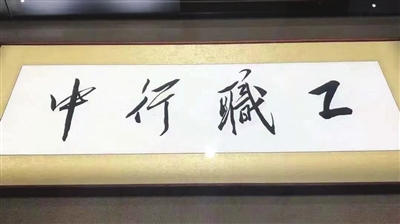 中行職工